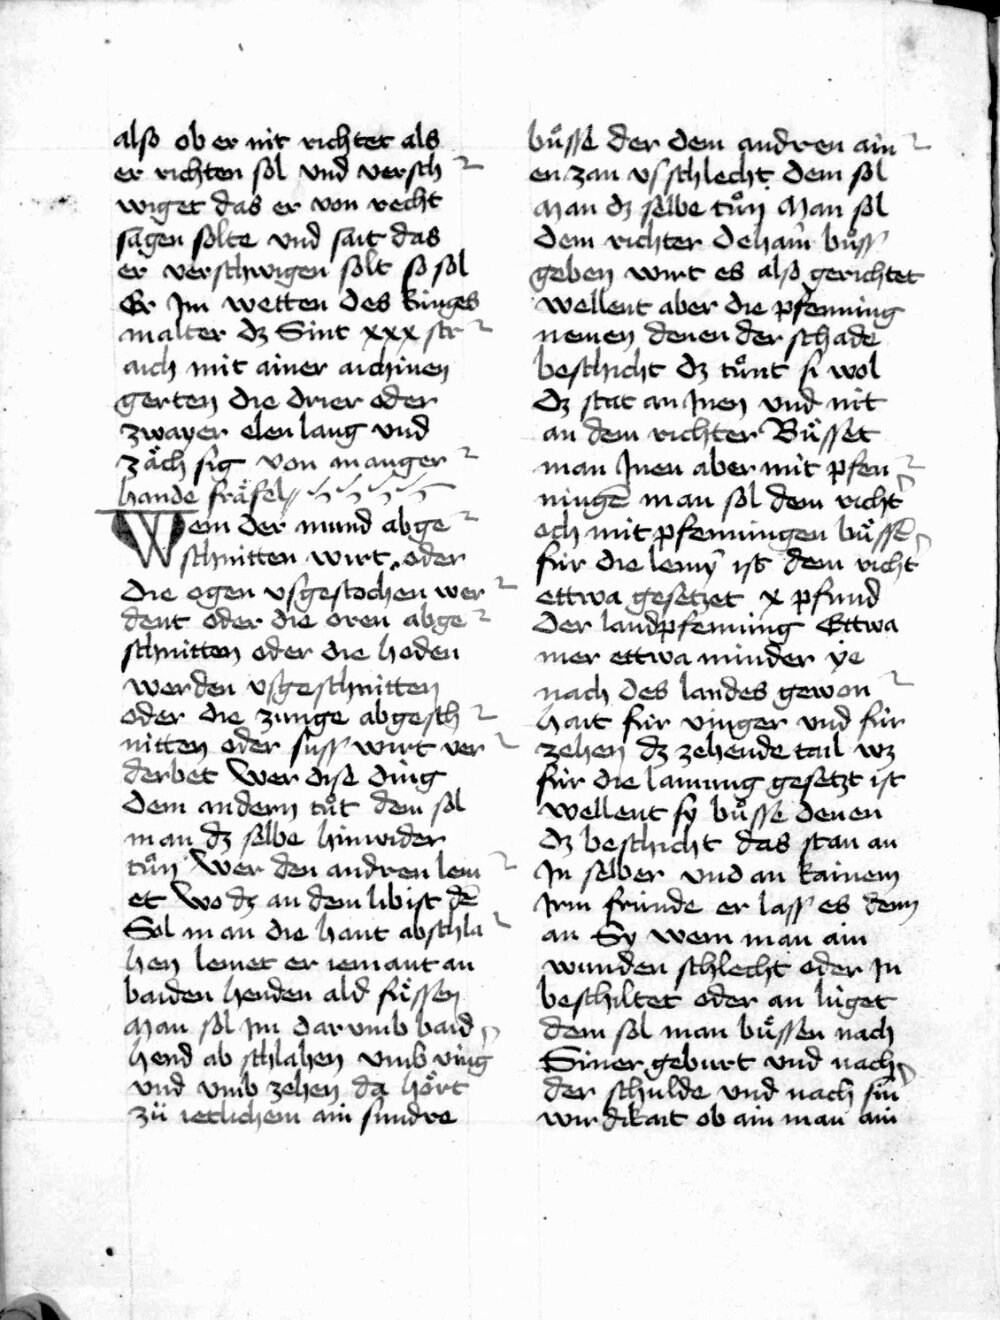 also ob er nit richtet als
er richten sol vnd versch
wiget das er von recht
sagen solte vnd sait das
er verschwigen solt so sol
Er Jm wetten des kunges
malter dz Sint xxx str
aich mit ainer aichinen
gerten die drier oder
zwayer elen lang vnd
zäch sig von manger
hande fräfel
Wem der mund abge
schnitten wirt oder
die ogen vsgestochen wer
dent oder die oren abge
schnitten oder die hoden
werden vsgeschnitten
oder die zunge abgesch
nitten oder suss wirt ver
derbet Wer dise ding
dem andern tuͦt dem sol
man dz selbe hinwider
tuͦn Wer den andren lem
et Wo dz an dem lib ist dē
Sol man die hant abschla
hen lemet er iemant an
baiden henden ald fuͤssen
Man sol im dar vmb baid
hend ab schlahen vmb ving
vnd vmb zehen da hoͤrt
zuͤ ietlichem ain sundre
buͦsse der dem andren ain
en zan vsschlecht dem sol
Man dz selbe tuͦn Man sol
dem richter dehain buͦss
geben wirt es also gerichtet
wellent aber die pfenning
nemen denen der schade
beschicht dz tuͦnt si wol
dz stat an Jnen vnd nit
an dem richter Buͤsset
man Jnen aber mit pfen
ningē man sol dem richt
och mit pfenningen buͤssē
für die lemy ist dem richt
ettwa gesetzet x pfund
der landpfenning Ettwa
mer ettwa minder ye
nach des landes gewon
hait für vinger vnd für
zehen dz zehende tail wz
für die lamung gesetzt ist
wellent sy buͦsse denen
dz beschicht das stan an
Jn selber vnd an kainem
Jrm fründe er lass es denn
an Sy wem man ain
wunden schlecht oder Jn
beschiltet oder an lüget
dem sol man buͤssen nach
Siner geburt vnd nach
der schulde vnd nach sin
wirdikait ob ain man ain